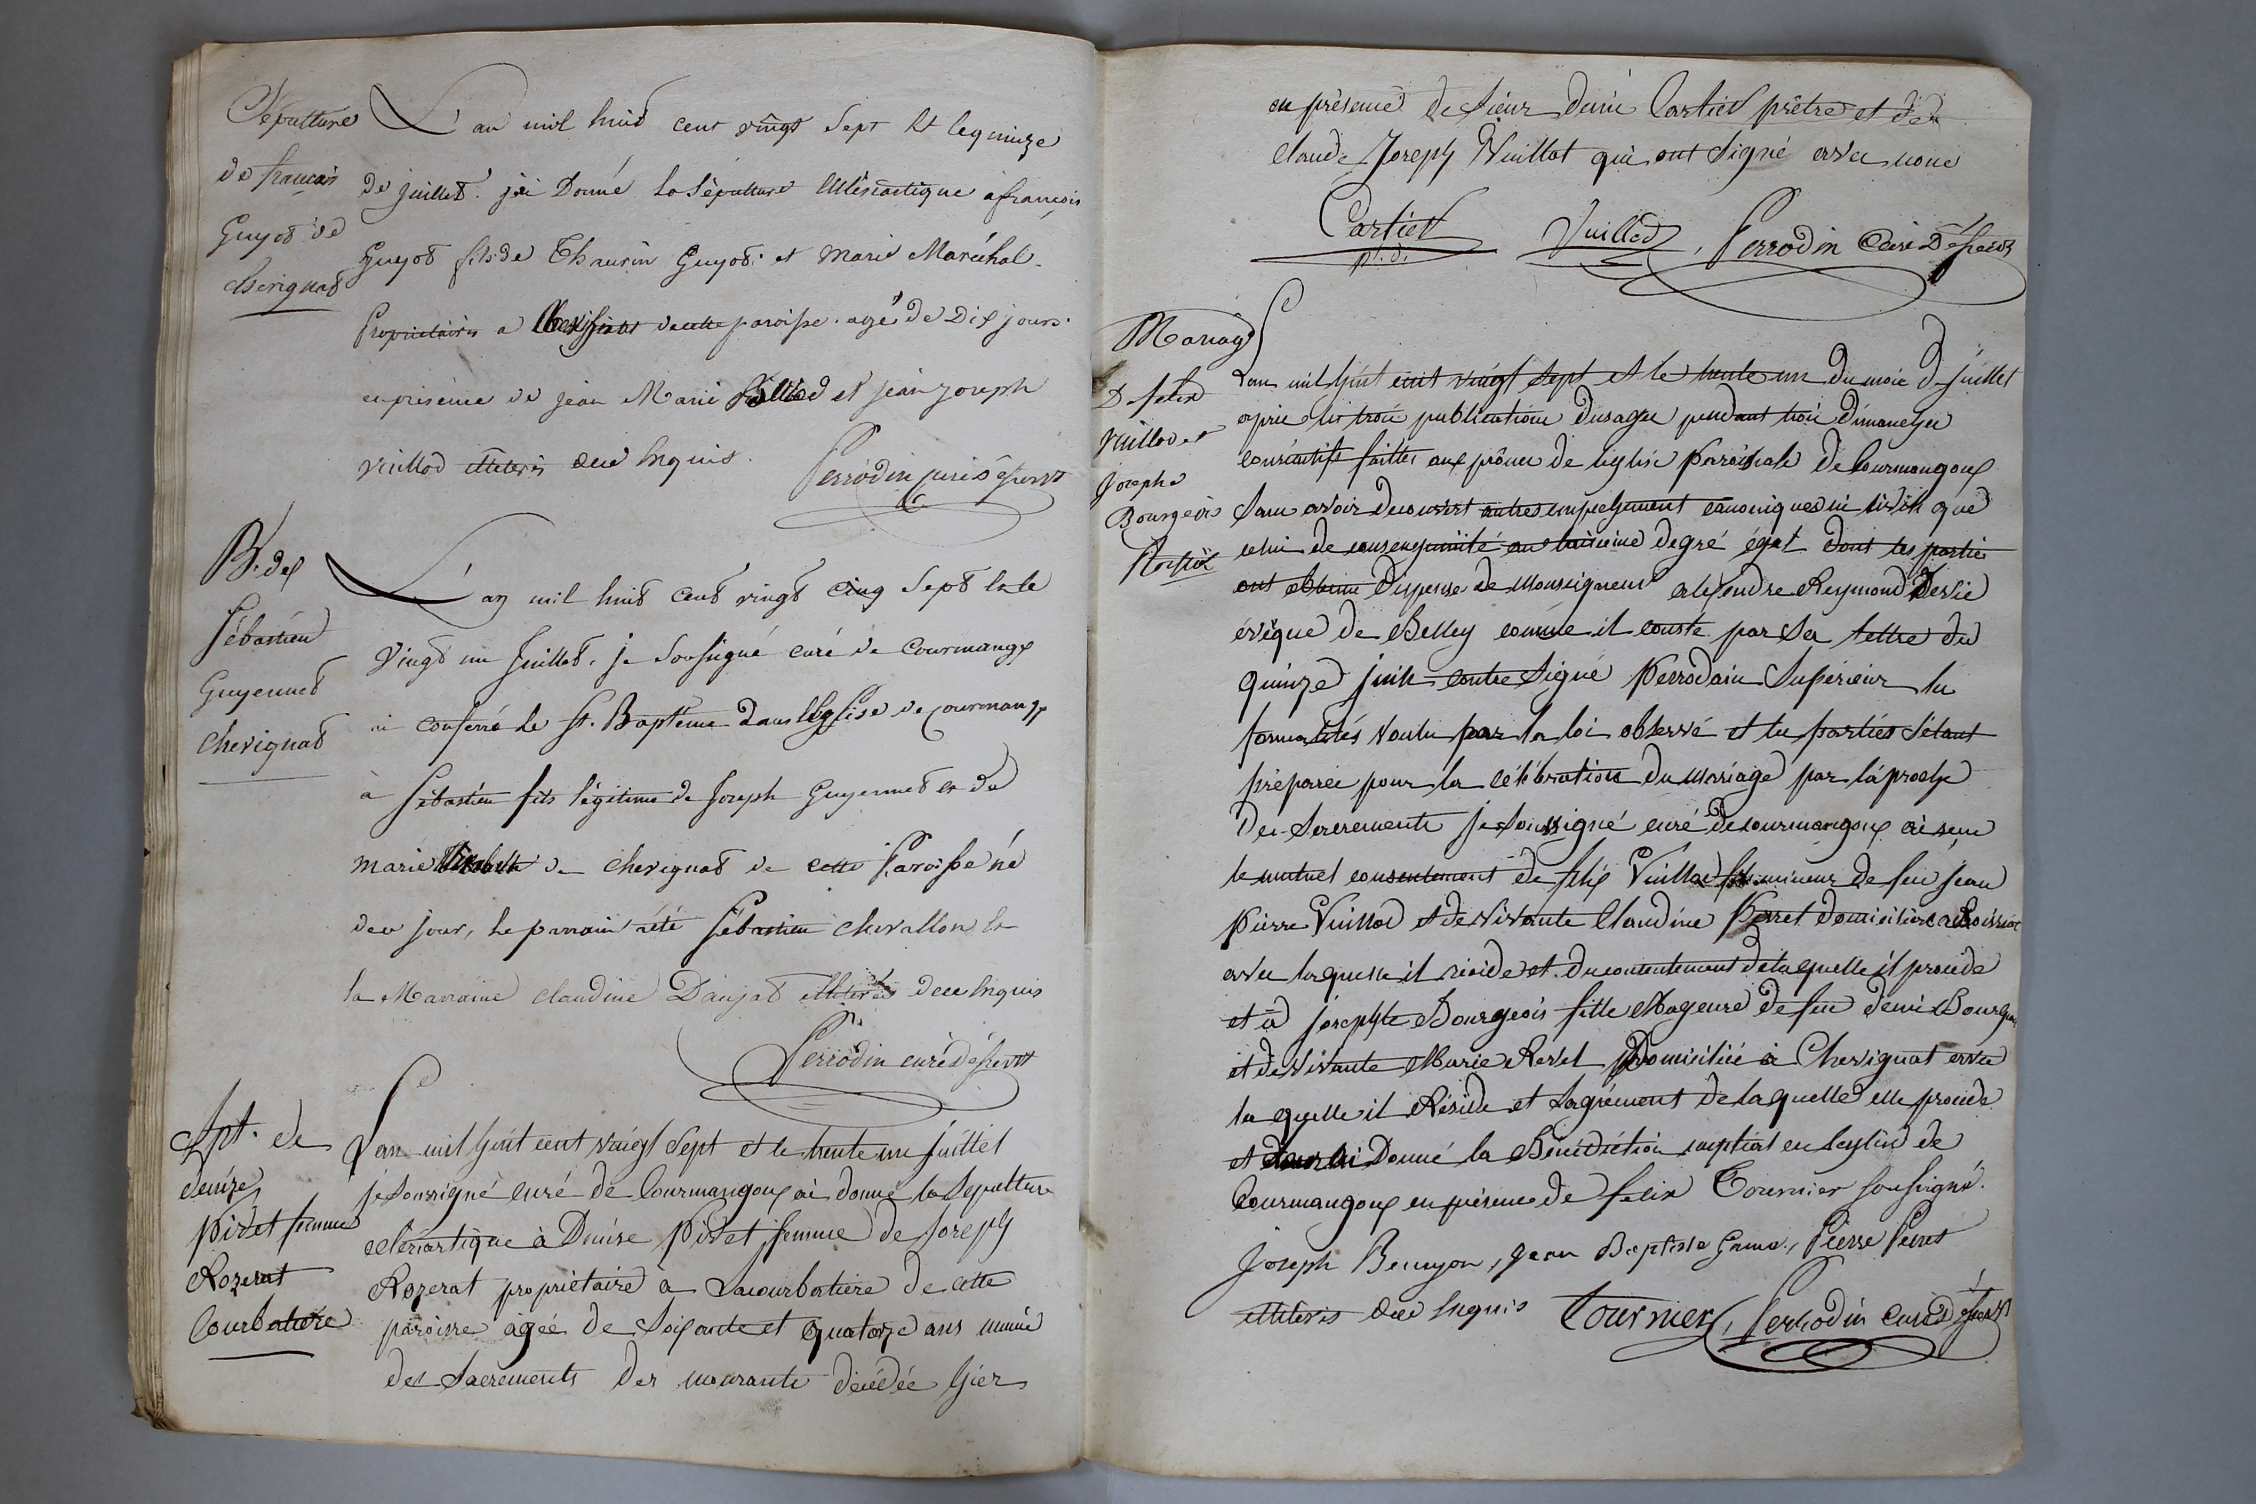 Sépulture
de françois
Guyot de
chevignat
L'an mil huit cent vingt sept et le quinze
de juillet. j'ai Donné la Sépulture éclésiastique à françois
Guyot fils de Thaurin Guyot. et Marie Maréchal
Propriétaires a de cette paroisse. agé de Dix jours.
en présence de jean Marie et jean joseph
vuillod illiterés dece enquis.
Perrodin curé desservt
B. de
Sébastien
Guyennet
chevignat
L'an mil huit cent vingt cinq Sept et le
vingt un Juillet. je Soussigné curé de Courmangx
ai conferré le St. Baptême dans l'Eglise de Courmangx
à Sébastien fils légitime de Joseph Guyennet et de
marie de chevignat de cette Paroisse né
dece jour, le parrain a été Sébastien chevallon et
la Marraine claudine Danjat illiterés dece enquis
Perrodin curé desservt
Spt. de
denize
Pivet femme
Rozerat
Courbatiere
L'an mil huit cent vingt sept et le trente un juillet
je Soussigné curé de Courmangoux ai donné la Sepulture
eclesiastique à Denise Pivet femme de Joseph
Rozerat propriétaire a Lacourbatiere de cette
paroisse agée de Soixante et quatorze ans munie
des Sacrements des mourants décédée hier
en présence de Sieur Denis Cartier prêtre et de
claude Joseph Vuillot qui ont signé avec nous
Cartier
p. d.
Vuillod
Perrodin Curé Desservt
Mariage
De felix
Vuillod et
Josephe
Bourgeois
Roissiat
L'an mil huit cent vingt sept et le trente un du mois de Juillet
après les trois publications d'usage pendant trois dimanches
consécutifs faittes aux prônes de l'église paroissiale de Courmangoux
sans avoir decouvert autres empechement canonique ni civil que
celui de consenguinité au troisième degré égal dont les parties
ont obtenu dispense de Monseigneur alexandre Reymond Devie
évêque de Belley comme il conste par Sa lettre du
quinze juin contre Signé Perrodain Supérieur les
formalités voulu par la loi observé et les parties s'étant
préparée pour la célébration du mariage par l'aproche
Des Sacrements je Soussigné curé de courmangoux ai reçu
le mutuel consentement de félix Vuillod fils mineur de feu jean
pierre Vuillod et de vivante Claudine Perret domiciliée a Roissiat
avec laquelle il réside et du contentement de laquelle il procède
et à josephte Bourgeois fille Mageure de feu denis Bourgeois
et de vivante Marie Revel Domiciliée à Chevignat avec
la quelle il Réside et L'agrément de la quelle elle procède
et Donné la Bénédiction nuptial en l'eglise de
Courmangoux en présence de felix Tournier soussigné.
Joseph Beuryon, jean Baptiste Gama, Pierre Perret
illiteris dece enquis Tournier, Perrodin Curé Desservt